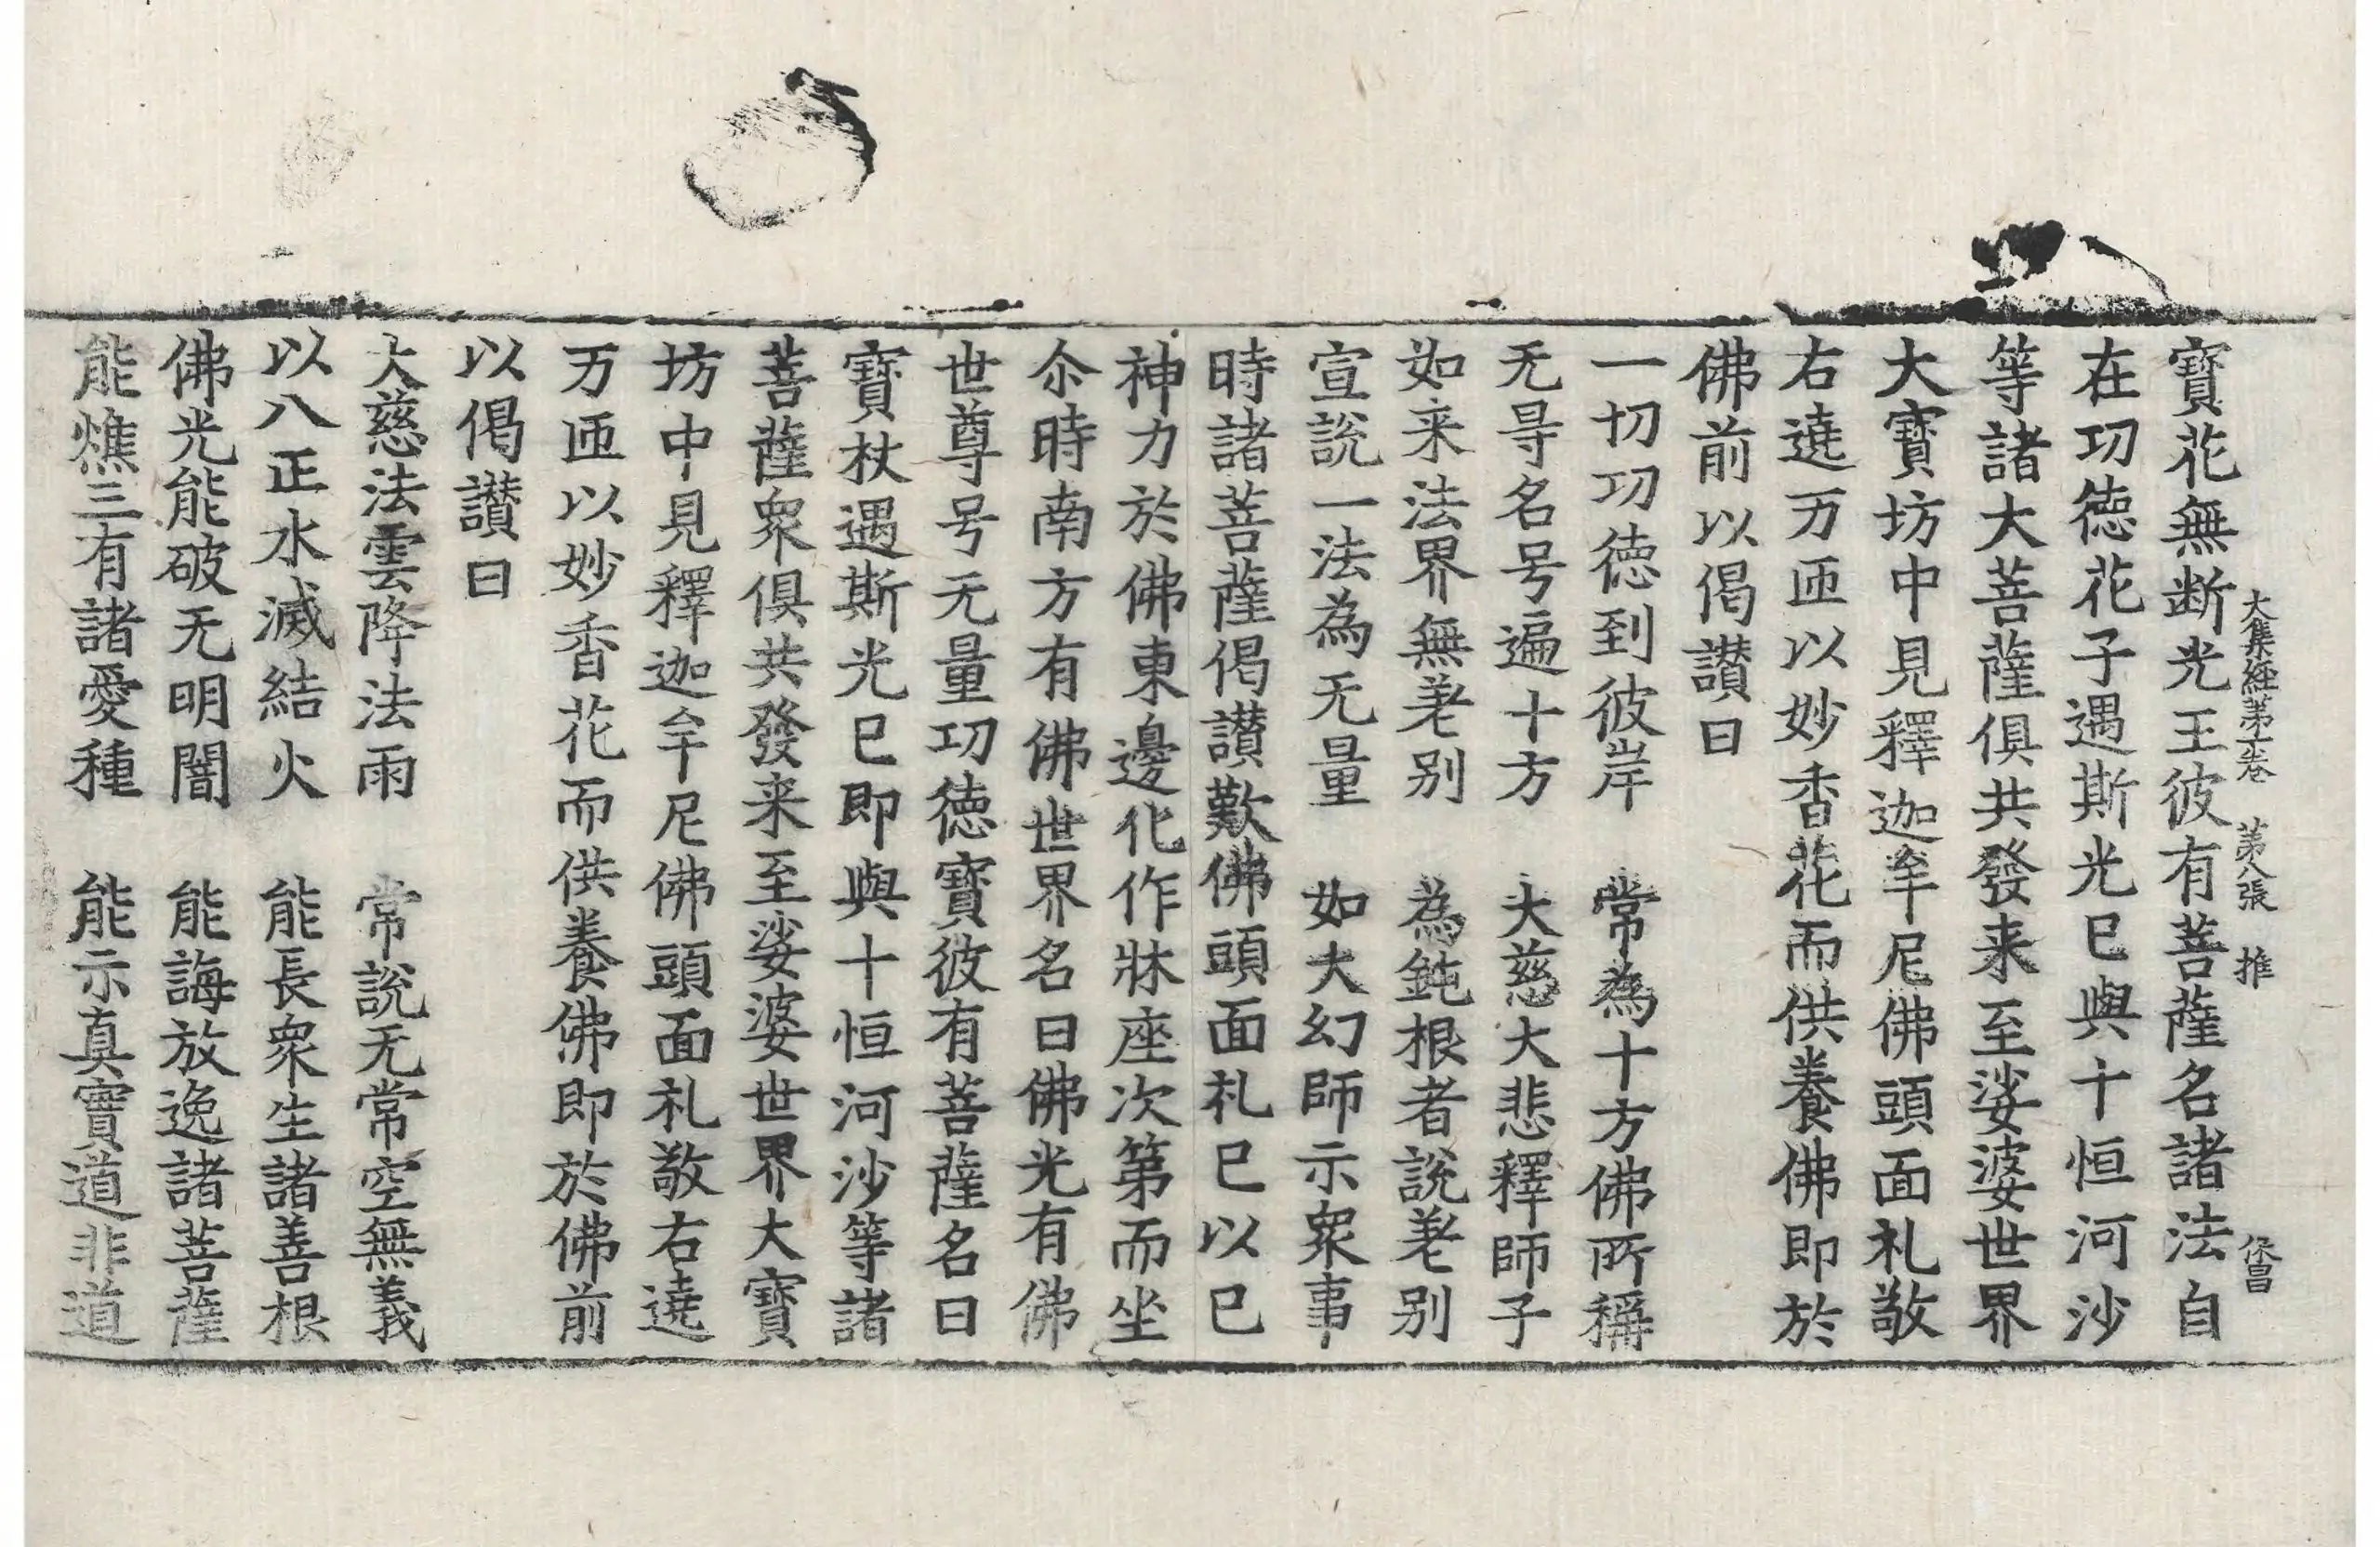 大集經第一卷　第八張　推
寶花無断光王彼有菩薩名諸法自
在功德花子遇斯光已與十恒河沙
等諸大菩薩俱共發来至娑婆世界
大寶坊中見釋迦牟尼佛頭面礼敬
右遶万匝以妙香花而供養佛即於
佛前以偈讃曰
一切功德到彼岸　常為十方佛所稱
无㝵名号遍十方　大慈大悲釋師子
如来法界無差别　為鈍根者說差别
宣說一法為无量　如大幻師示衆事
時諸菩薩偈讃歎佛頭面礼已以已
神力於佛東邊化作牀座次第而坐
尒時南方有佛世界名曰佛光有佛
世尊号无量功德寶彼有菩薩名曰
寶杖遇斯光已即與十恒河沙等諸
菩薩衆俱共發来至娑婆世界大寶
坊中見釋迦牟尼佛頭面礼敬右遶
万匝以妙香花而供養佛即於佛前
以偈讃曰
大慈法雲降法雨　常說无常空無義
以八正水滅結火　能長衆生諸善根
佛光能破无明闇　能誨放逸諸菩薩
能燋三有諸愛種　能示真實道非道